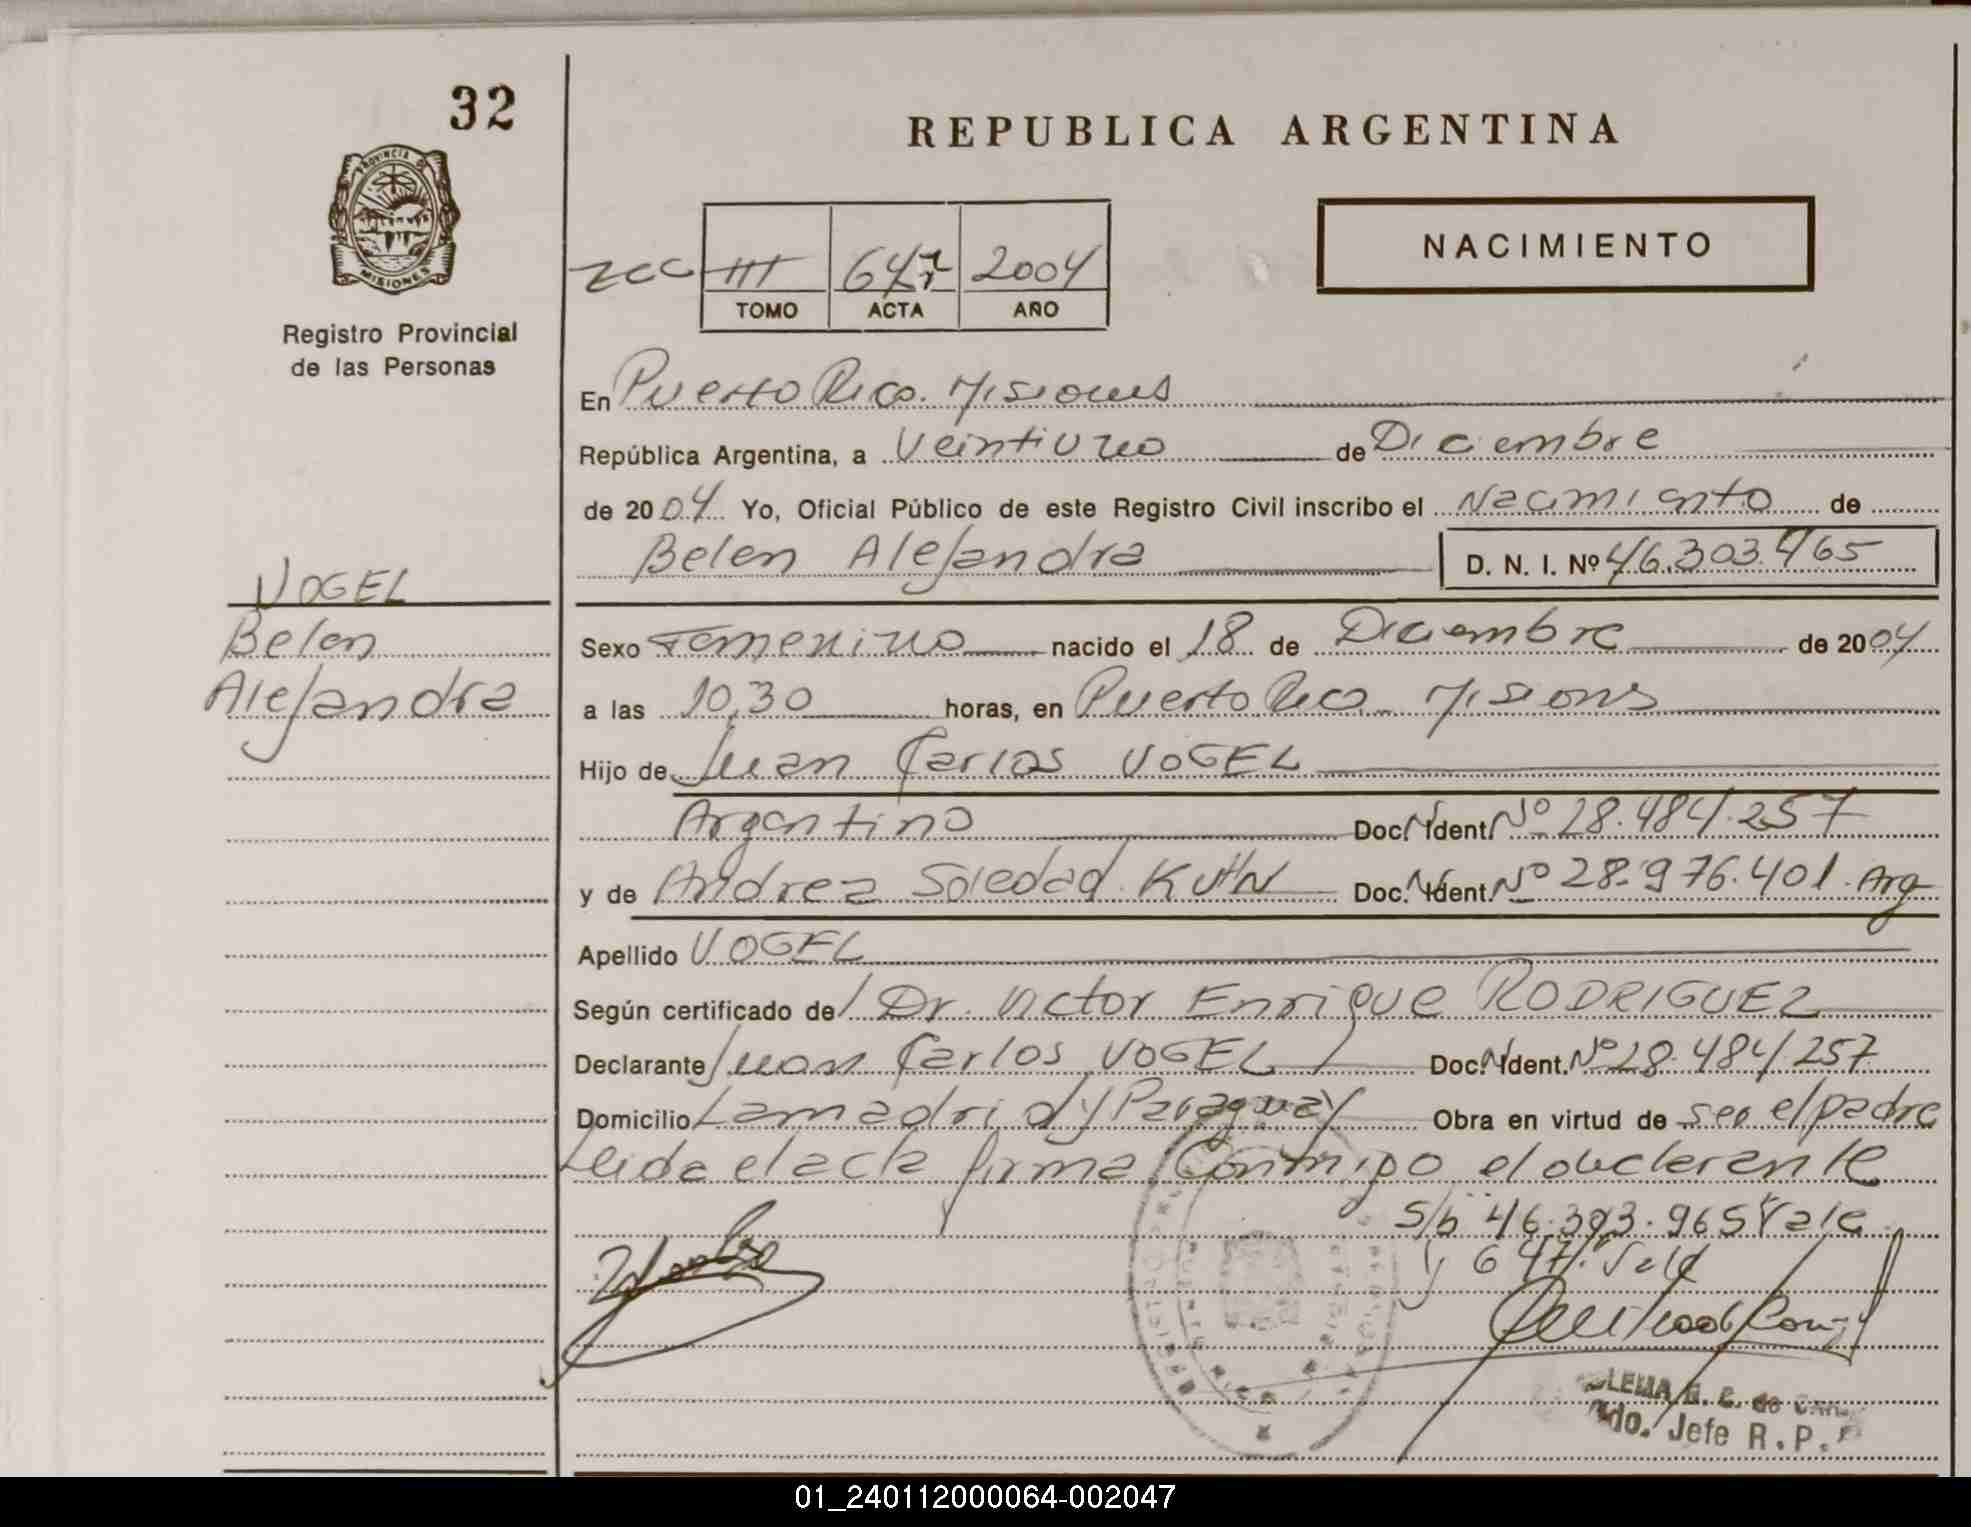 32
REPUBLICA ARGENTINA
PROVINCIA DE
MISIONES
Registro Provincial
de las Personas
NACIMIENTO
III 647 2004
TOMO ACTA AÑO
En Puerto Rico. Misiones
República Argentina, a Veintiuno de Diciembre
de 2004 Yo, Oficial Público de este Registro Civil inscribo el Nacimiento de
Belen Alejandra D. N. I. Nº
VOGEL
Belen
Alejandra
Sexo Femenino nacido el 18 de Diciembre de 2004
a las 10,30 horas, en Puerto Rico Misiones
Hijo de Juan Carlos VOGEL
Argentino Doc. Ident. Nº 28.484.257
y de Andrea Soledad KUHN Doc. Ident. Nº 28.976.401. Arg
Apellido VOGEL
Según certificado de Dr. Victor Enrique RODRIGUEZ
Declarante Juan Carlos VOGEL Doc. Ident. Nº 28.484.257
Domicilio Lamadrid y Paraguay Obra en virtud de ser el padre
Leida el acta firma Conmigo el declarante
S/b 46.303.965 Vale
y 647. Vale
G. C. de
Jefe R.P.
01_240112000064-002047